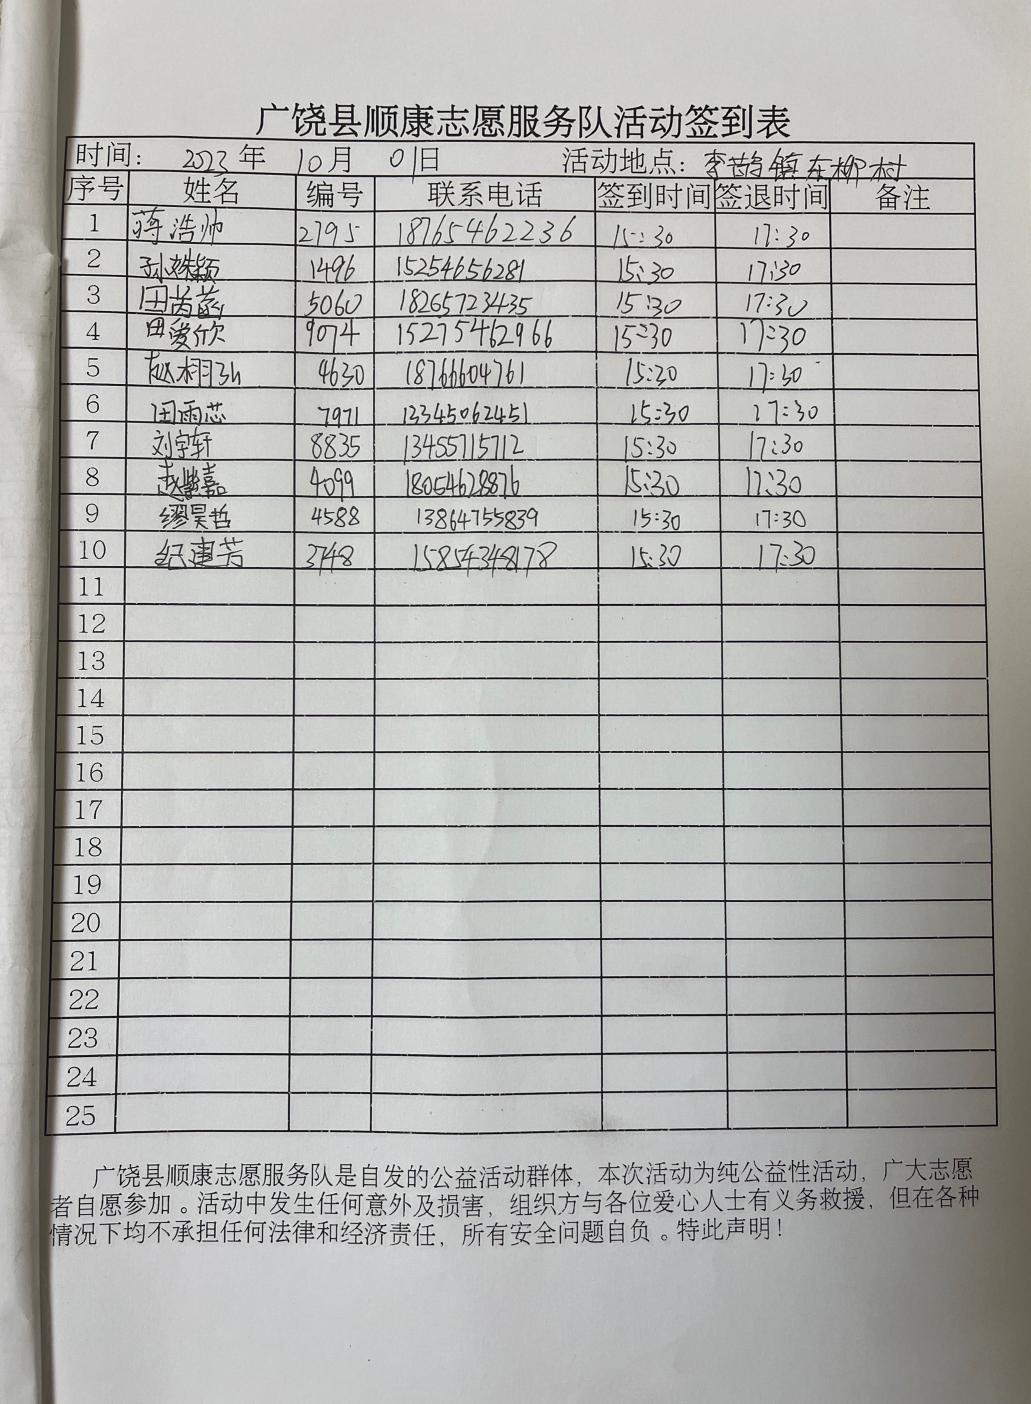 广饶县顺康志愿服务队活动签到表
时间： 2023 年 10 月 01 日 活动地点：李鹊镇东柳村
序号 姓名 编号 联系电话 签到时间 签退时间 备注
1 蒋浩帅 2795 18765462236 15:30 17:30
2 孙姝颖 1496 15254656281 15:30 17:30
3 田芮菡 5060 18265723435 15:30 17:30
4 田爱欣 9074 15275462966 15:30 17:30
5 赵栩弘 4630 18766604761 15:30 17:30
6 田雨芯 7971 13345062451 15:30 17:30
7 刘宇轩 8835 13455715712 15:30 17:30
8 赵紫嘉 4099 18054628876 15:30 17:30
9 缪昊哲 4588 13864755839 15:30 17:30
10 纪建芳 3748 15854348178 15:30 17:30
11
12
13
14
15
16
17
18
19
20
21
22
23
24
25
广饶县顺康志愿服务队是自发的公益活动群体，本次活动为纯公益性活动，广大志愿
者自愿参加。活动中发生任何意外及损害，组织方与各位爱心人士有义务救援，但在各种
情况下均不承担任何法律和经济责任，所有安全问题自负。特此声明！